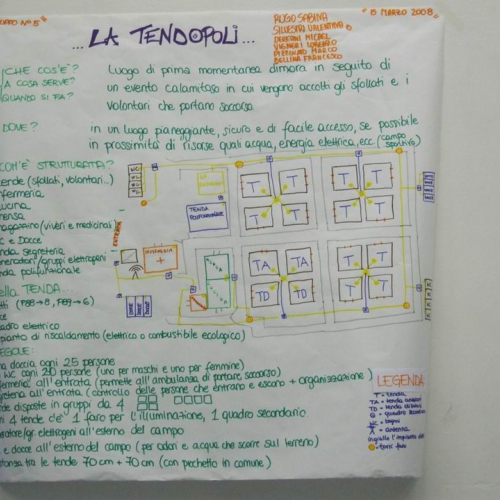 "8 MARZO 2008"
... LA TENDOPOLI ...
RUGO SABINA
SILVESTRI VALENTINA
CHE COS'È?
A COSA SERVE?
QUANDO SI FA?
Luogo di prima momentanea dimora in seguito di
un evento calamitoso in cui vengono accolti gli sfollati e i
volontari che portano soccorso
DOVE?
in un luogo pianeggiante, sicuro e di facile accesso, se possibile
in prossimità di risorse quali acqua, energia elettrica, ecc (campo sportivo)
COM'È STRUTTURATA?
tende (sfollati, volontari...)
infermeria
cucina
mensa
magazzino (viveri e medicinali
WC e Docce
tenda segreteria
generatori/gruppi elettrogeni
tenda polifunzionale
TENDA
POLIFUNZIONALE
T T T T
T T T T
TA TA T T
TD TD T T
ENTRATA
INFERMERIA
+
della TENDA...
quadro elettrico
impianto di riscaldamento (elettrico o combustibile ecologico)
REGOLE:
una doccia ogni 25 persone
WC ogni 20 persone (uno per maschi e uno per femmine)
infermeria all'entrata (permette all'ambulanza di portare soccorso)
segreteria all'entrata (controllo delle persone che entrano e escono + organizzazione)
tende disposte in gruppi da 4
ogni 4 tende c'è 1 faro per l'illuminazione, 1 quadro secondario
generatore/gr. elettrogeni all'esterno del campo
WC e docce all'esterno del campo (per odori e acqua che scorre sul terreno)
distanza tra le tende 70cm + 70cm (con picchetto in comune)
LEGENDA
T = tenda
TA = tenda
TD = tenda
Q = quadro
= antenna